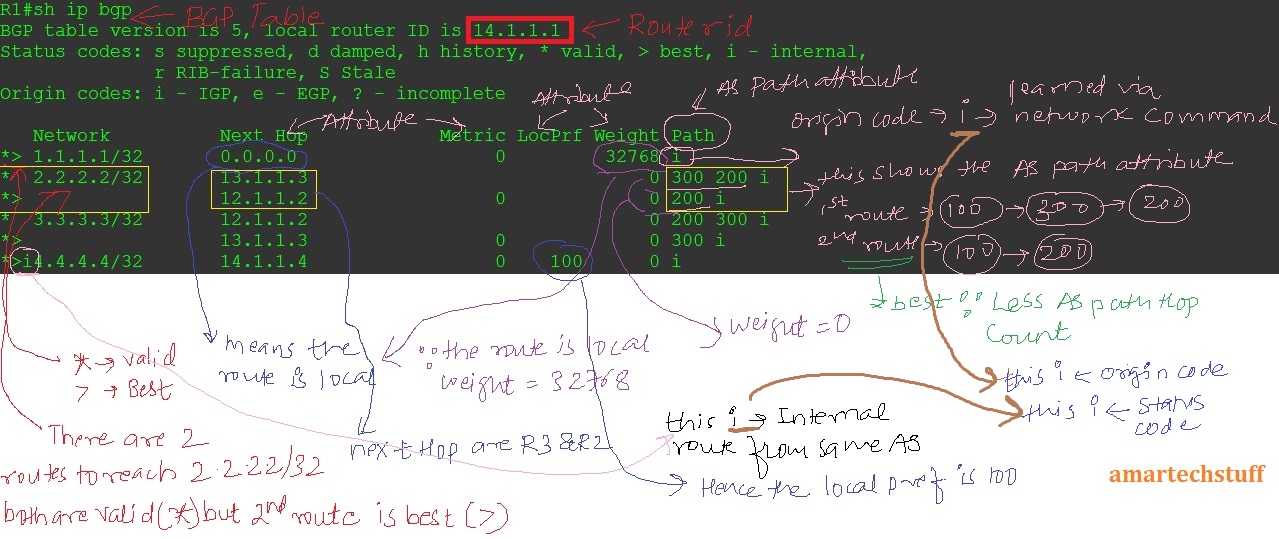 R1#sh ip bgp
BGP Table
BGP table version is 5, local router ID is 14.1.1.1
Router id
Status codes: s suppressed, d damped, h history, * valid, > best, i - internal,
r RIB-failure, S Stale
Origin codes: i - IGP, e - EGP, ? - incomplete
Attribute
Attribute
AS Path attribute
origin code → i → learned via
network Command
Network Next Hop Metric LocPrf Weight Path
*> 1.1.1.1/32 0.0.0.0 0 32768 i
* 2.2.2.2/32 13.1.1.3 0 300 200 i
*> 12.1.1.2 0 0 200 i
* 3.3.3.3/32 12.1.1.2 0 200 300 i
*> 13.1.1.3 0 0 300 i
*>i4.4.4.4/32 14.1.1.4 0 100 0 i
this shows the AS path attribute
1st route → 100 → 300 → 200
2nd route → 100 → 200
best ∵ Less AS path Hop
Count
* → valid
> → Best
means the
route is local
∵ the route is local
weight = 32768
Weight = 0
this i ← orgin code
this i ← Status
code
There are 2
routes to reach 2.2.22/32
both are valid(*) but 2nd route is best (>)
next Hop are R3 & R2
this i → Internal
route from same AS
Hence the local pref is 100
amartechstuff